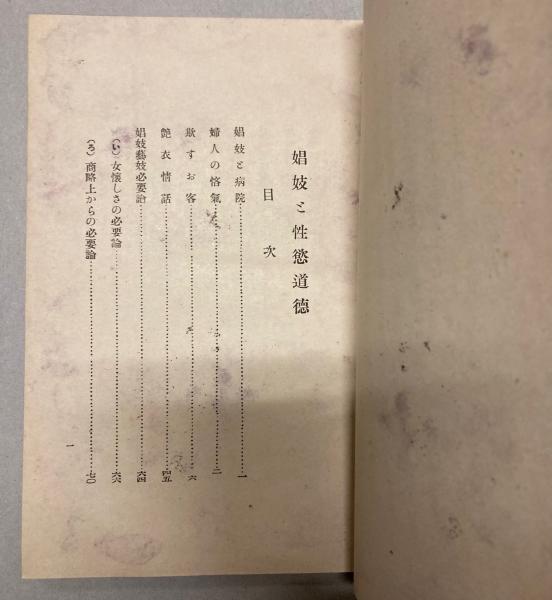 娼妓と性慾道德
目次
娼妓と病院……一
婦人の悋氣……二
欺すお客……六
艶衣情話……四五
娼妓藝妓必要論……六四
(い)女懷しさの必要論……六六
(ろ)商略上からの必要論……七〇
一